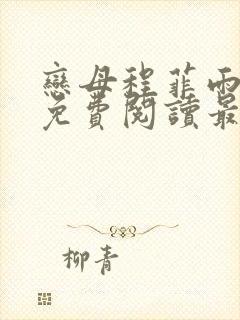 戀母程菲雨
免費閱讀最
柳青